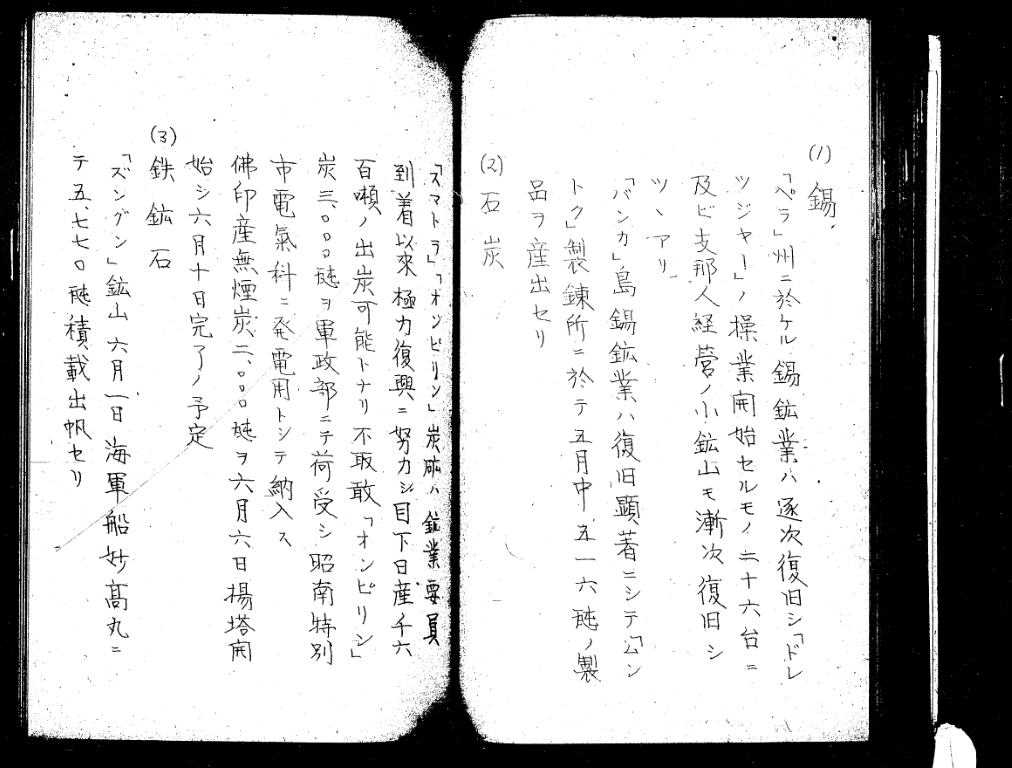 (1) 錫
「ペラ」州ニ於ケル錫鉱業ハ逐次復旧シ「ドレ
ツジャー」ノ操業開始セルモノ二十六台ニ
及ビ支那人経営ノ小鉱山モ漸次復旧シ
ツヽアリ
「バンカ」島錫鉱業ハ復旧顕著ニシテ「ムン
トク」製錬所ニ於テ五月中五一六瓲ノ製
品ヲ産出セリ
(2) 石炭
「スマトラ」「オンビリン」炭砿ハ鉱業要員
到着以來極力復興ニ努力シ目下日産千六
百噸ノ出炭可能トナリ不取敢「オンビリン」
炭三、〇〇〇瓲ヲ軍政部ニテ荷受シ昭南特別
市電氣科ニ発電用トシテ納入ス
佛印産無煙炭二、〇〇〇瓲ヲ六月六日揚塔開
始シ六月十日完了ノ予定
(3) 鉄鉱石
「ズングン」鉱山六月一日海軍船妙高丸ニ
テ五、七七〇瓲積載出帆セリ